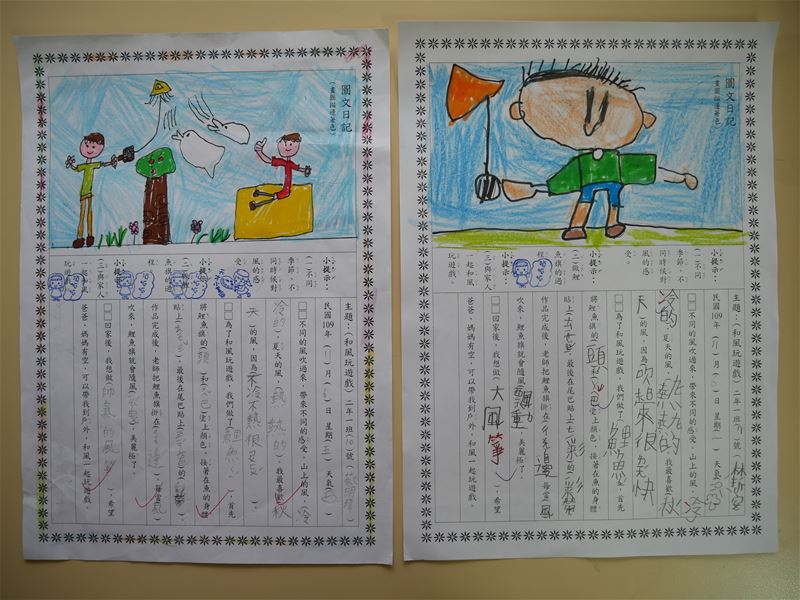 圖文日記
(畫圖描邊著色)
小提示：
(一)不同
季節、不
同時候對
風的感
受
(二)做鯉
程
小提示：
(三)與家人
一起和風
玩遊戲
主題：(和風玩遊戲)二年一班(10)號
民國109年(11)月 日 星期(五) 天氣
□□不同的風吹過來，帶來不同的感受。山上的風，冷
冷的，夏天的風，熱熱的，我最喜歡秋
天的風，因為不冷不熱很
□□為了和風玩遊戲，我們做了(鯉魚 )。首先
將鯉魚旗的(頭)和( 巴)塗上顏色，接著在魚的身體
貼上 ，最後在尾巴貼上 的
作品完成後，老師把鯉魚旗掛在( 邊)，每當(風)
吹來，鯉魚旗就會隨風 ，美麗極了。
□□回家後，我想做(帥氣的風箏)，希望
爸爸、媽媽有空，可以帶我到戶外，和風一起玩遊戲。
圖文日記
(畫圖描邊著色)
小提示：
(一)不同
季節、不
同時候對
風的感
受。
小提示：
(二)做鯉
魚旗的過
程
(三)與家人
一起和風
玩遊戲。
主題：(和風玩遊戲)二年一班 號
民國109年(11)月 日 星期 天氣
□□不同的風吹過來，帶來不同的感受。山上的風，冷
冷的，夏天的風，熱熱的，我最喜歡秋
天的風，因為吹起來很爽快
□□為了和風玩遊戲，我們做了(鯉魚 )。首先
將鯉魚旗的(頭)和( 巴)塗上顏色，接著在魚的身體
貼上 ，最後在尾巴貼上(七彩)的
作品完成後，老師把鯉魚旗掛在( 邊)，每當(風)
吹來，鯉魚旗就會隨風 ，美麗極了。
□□回家後，我想做(大風箏)，希望
爸爸、媽媽有空，可以帶我到戶外，和風一起玩遊戲。